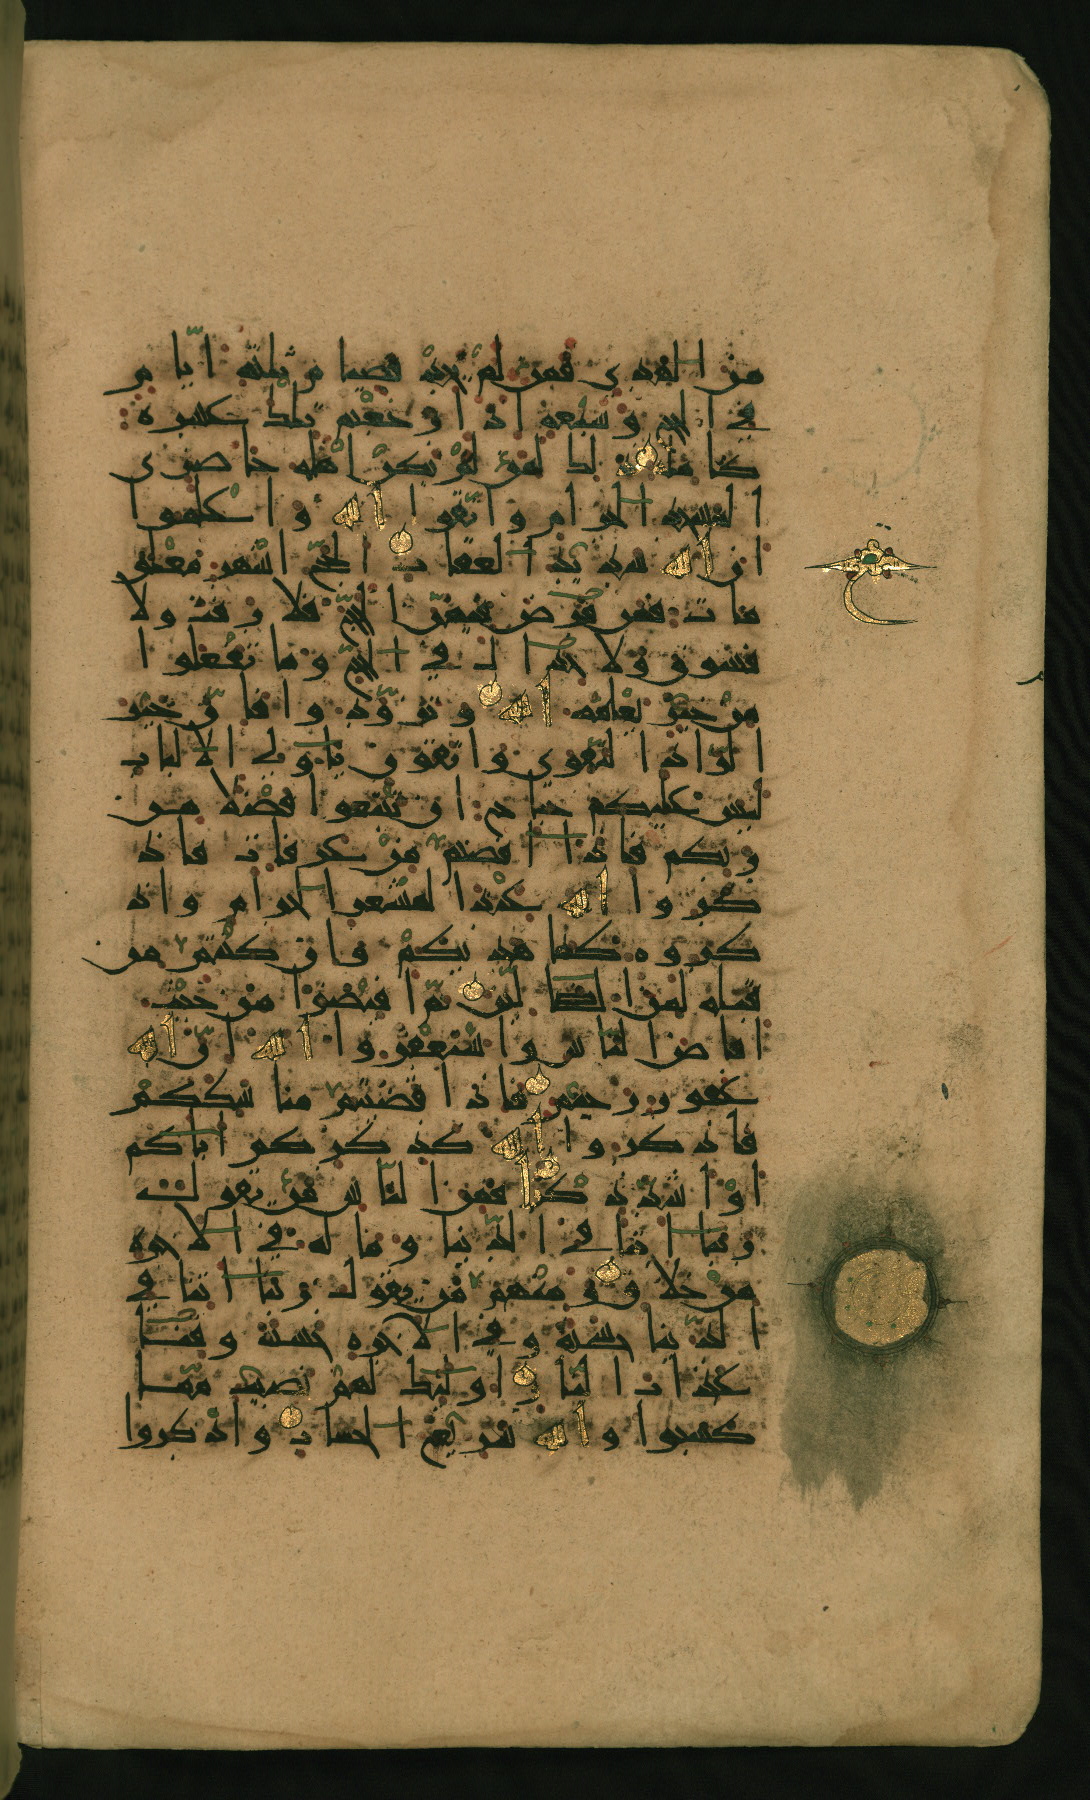 من الهدى فمن لم يجد فصيام ثلثة ايام
في الحج وسبعة اذا رجعتم تلك عشرة
كاملة ذلك لمن لم يكن اهله حاضرى
المسجد الحرام واتقوا الله واعلموا
ان الله شديد العقاب الحج اشهر معلو
مات فمن فرض فيهن الحج فلا رفث ولا
فسوق ولا جدال في الحج وما تفعلوا
من خير يعلمه الله وتزودوا فان خير
الزاد التقوى واتقون ياولي الالباب
ليس عليكم جناح ان تبتغوا فضلا من
ربكم فاذا افضتم من عرفات فاذ
كروا الله عند المشعر الحرام واذ
كروه كما هديكم وان كنتم من
قبله لمن الضالين ثم افيضوا من حيث
افاض الناس واستغفروا الله ان الله
غفور رحيم فاذا قضيتم مناسككم
فاذكروا الله كذكركم اباكم
او اشد ذكرا فمن الناس من يقول
ربنا اتنا في الدنيا وما له في الاخرة
من خلاق ومنهم من يقول ربنا اتنا في
الدنيا حسنة وفي الاخرة حسنة وقنا
عذاب النار اوليك لهم نصيب مما
كسبوا والله سريع الحساب واذكروا